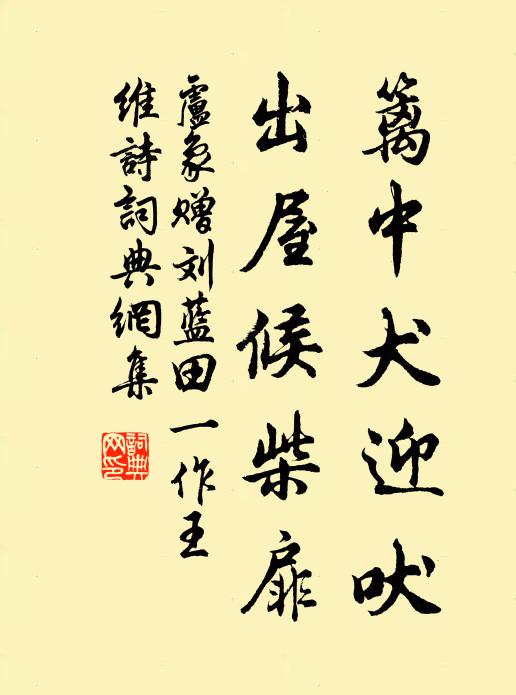 籬中犬迎吠
出屋候柴扉
盧象贈刘藍田一作王
維詩詞典網集
詞典
网印